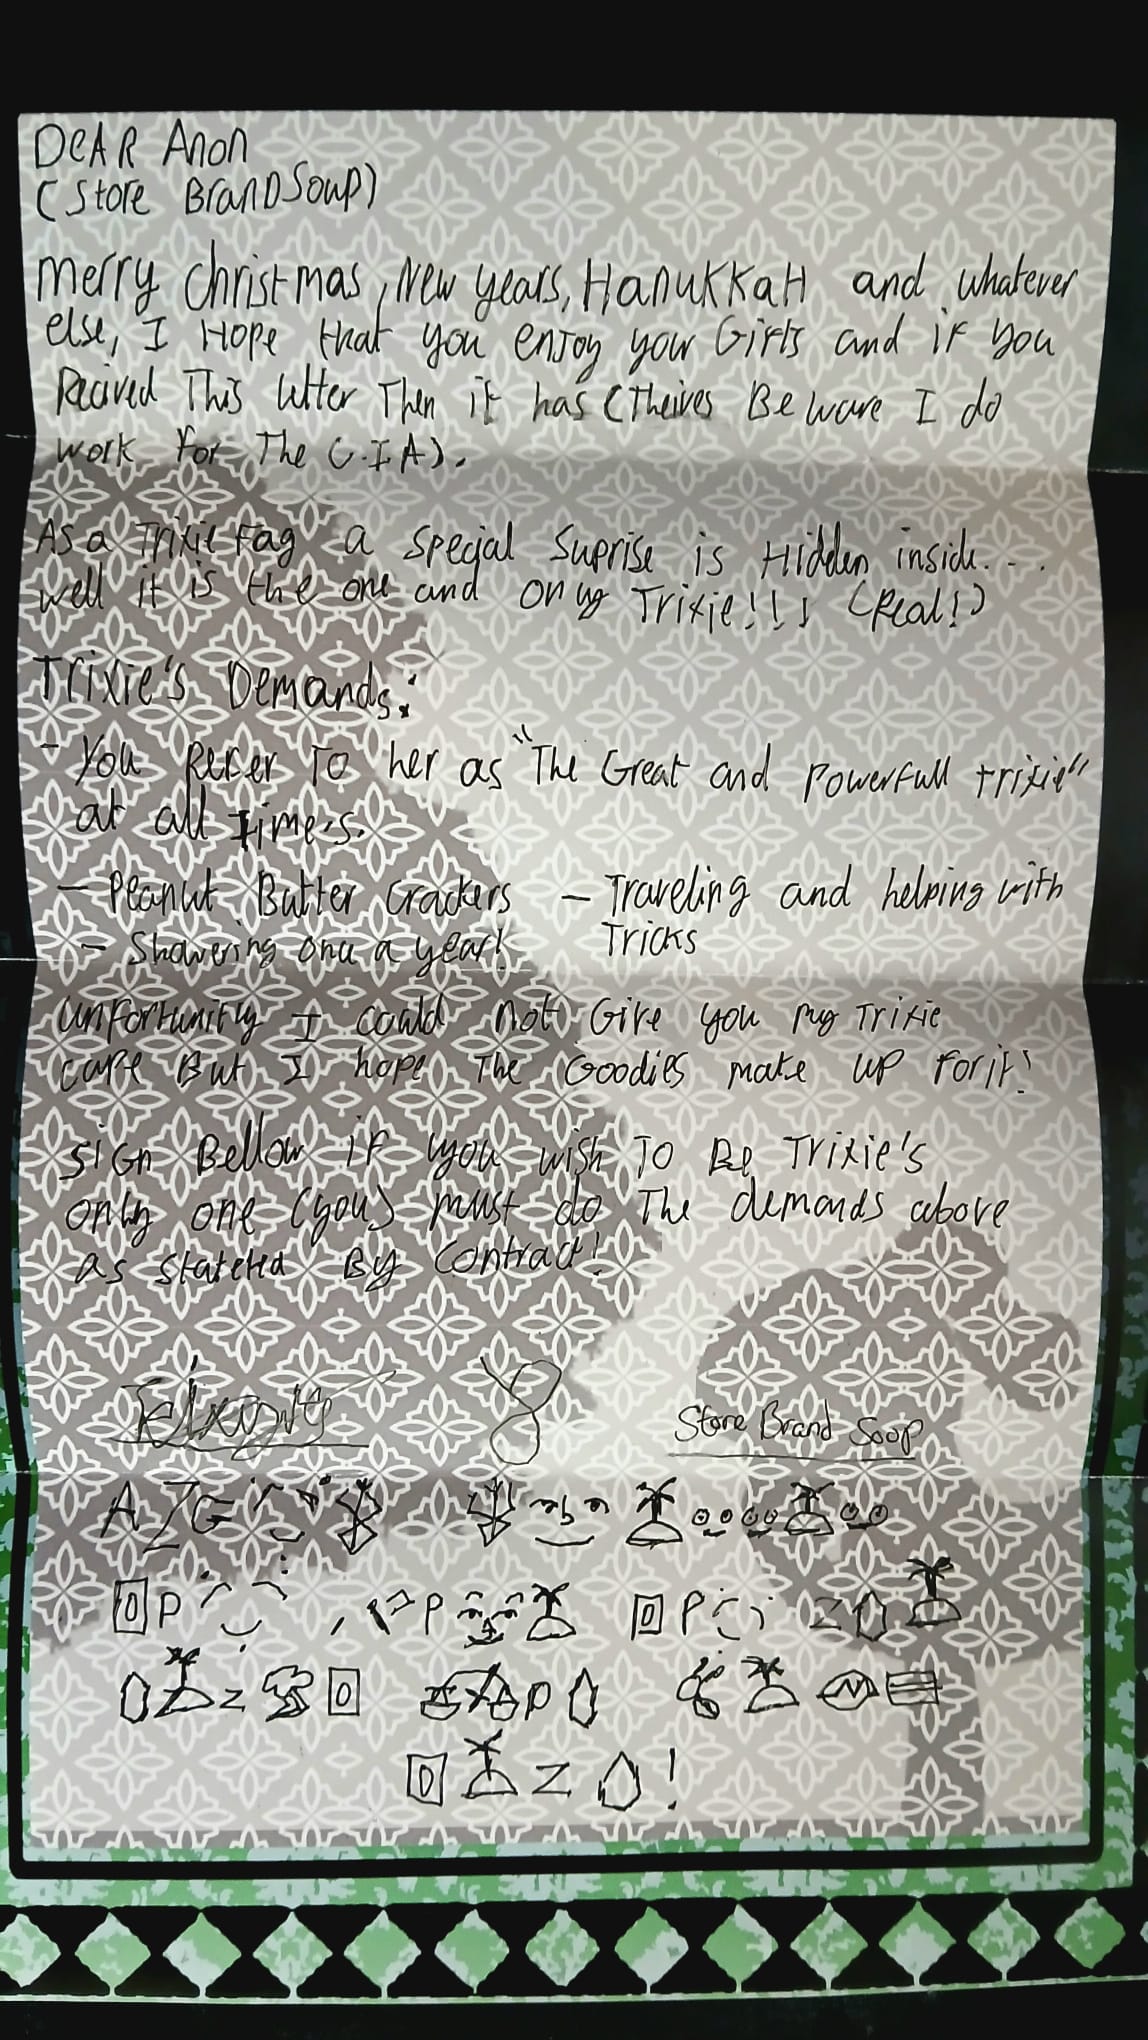 DEAR Anon
(Store BranDSoup)
Merry Christmas, New years, HanuKKaH and whatever
else, I Hope that you enjoy your Gifts and if you
Recived This letter Then it has (Theives Beware I do
work for The C.I.A).
As a Trixie Fag a Special Suprise is Hidden inside...
well it is the one and only Trixie!!! (Real!)
Trixie's Demands:
- You Refer To her as "The Great and Powerfull Trixie"
at all times.
- Peanut Butter Crackers - Traveling and helping with
- Showering once a year! Tricks
Unfortunitly I could not Give you my Trixie
cape But I hope The Goodies make up for it!
Sign Bellow if you wish To Be Trixie's
only one (you) must do The demands above
as stateted By Contract!
& Store Brand Soup